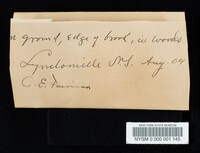 on ground, edge of brook, in woods
Lyndonville N.Y. Aug. 04
C. E. Fairman
NEW YORK STATE MUSEUM
NYSM 0 000 001 145